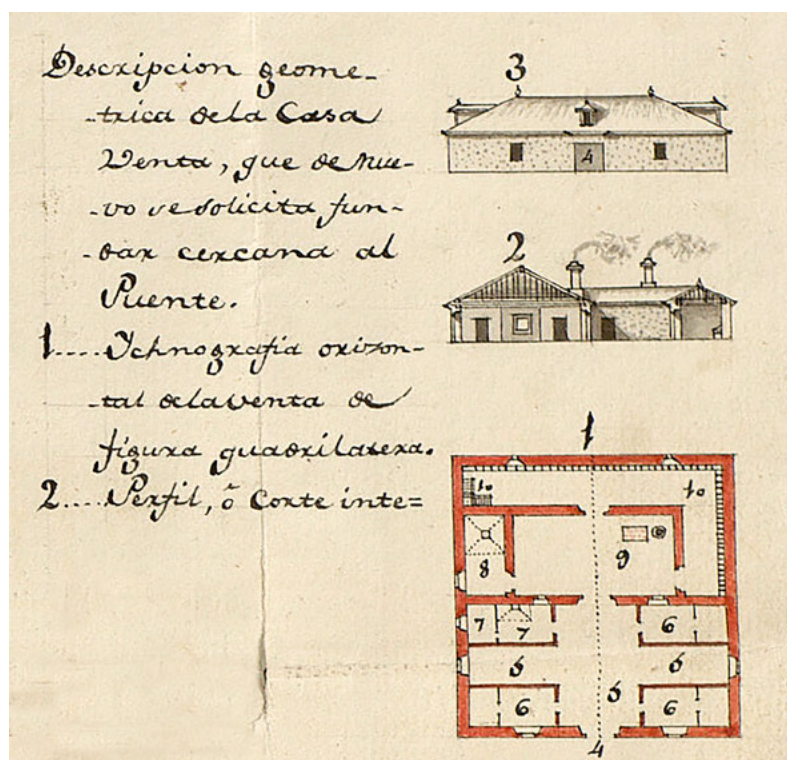 Descripcion geome-
-trica dela Casa
Venta, que de nue-
-vo se solicita fun-
-dar cercana al
Puente.
1....Ichnografia orizon-
-tal dela venta de
figura quadrilatera.
2....Perfil, ò Corte inte=
3
4
2
1
10 10
8 9
7 7 6
5 5
5
6 6
4